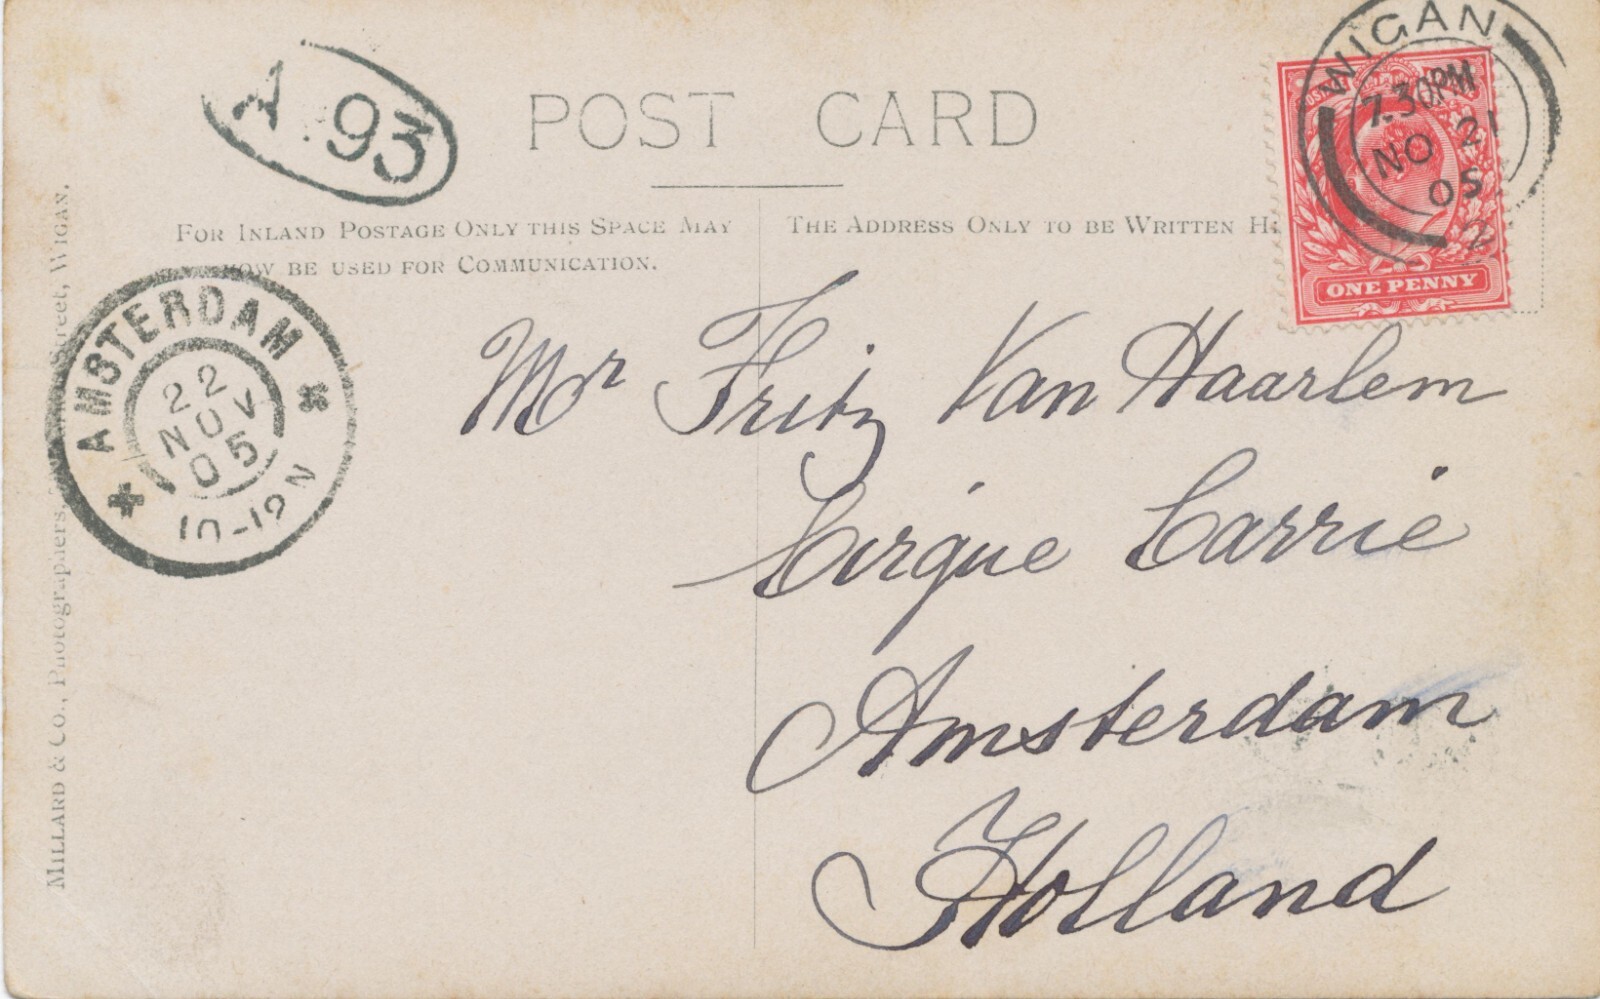 WIGAN
7.30PM
NO 21
05
A.93
POST CARD
FOR INLAND POSTAGE ONLY THIS SPACE MAY
NOW BE USED FOR COMMUNICATION.
THE ADDRESS ONLY TO BE WRITTEN
ONE PENNY
AMSTERDAM
22
NOV
05
10-12N
Mr Fritz Van Haarlem
Cirque Carrie
Amsterdam
Holland
MILLARD & CO., PHOTOGRAPHERS, Street, WIGAN.